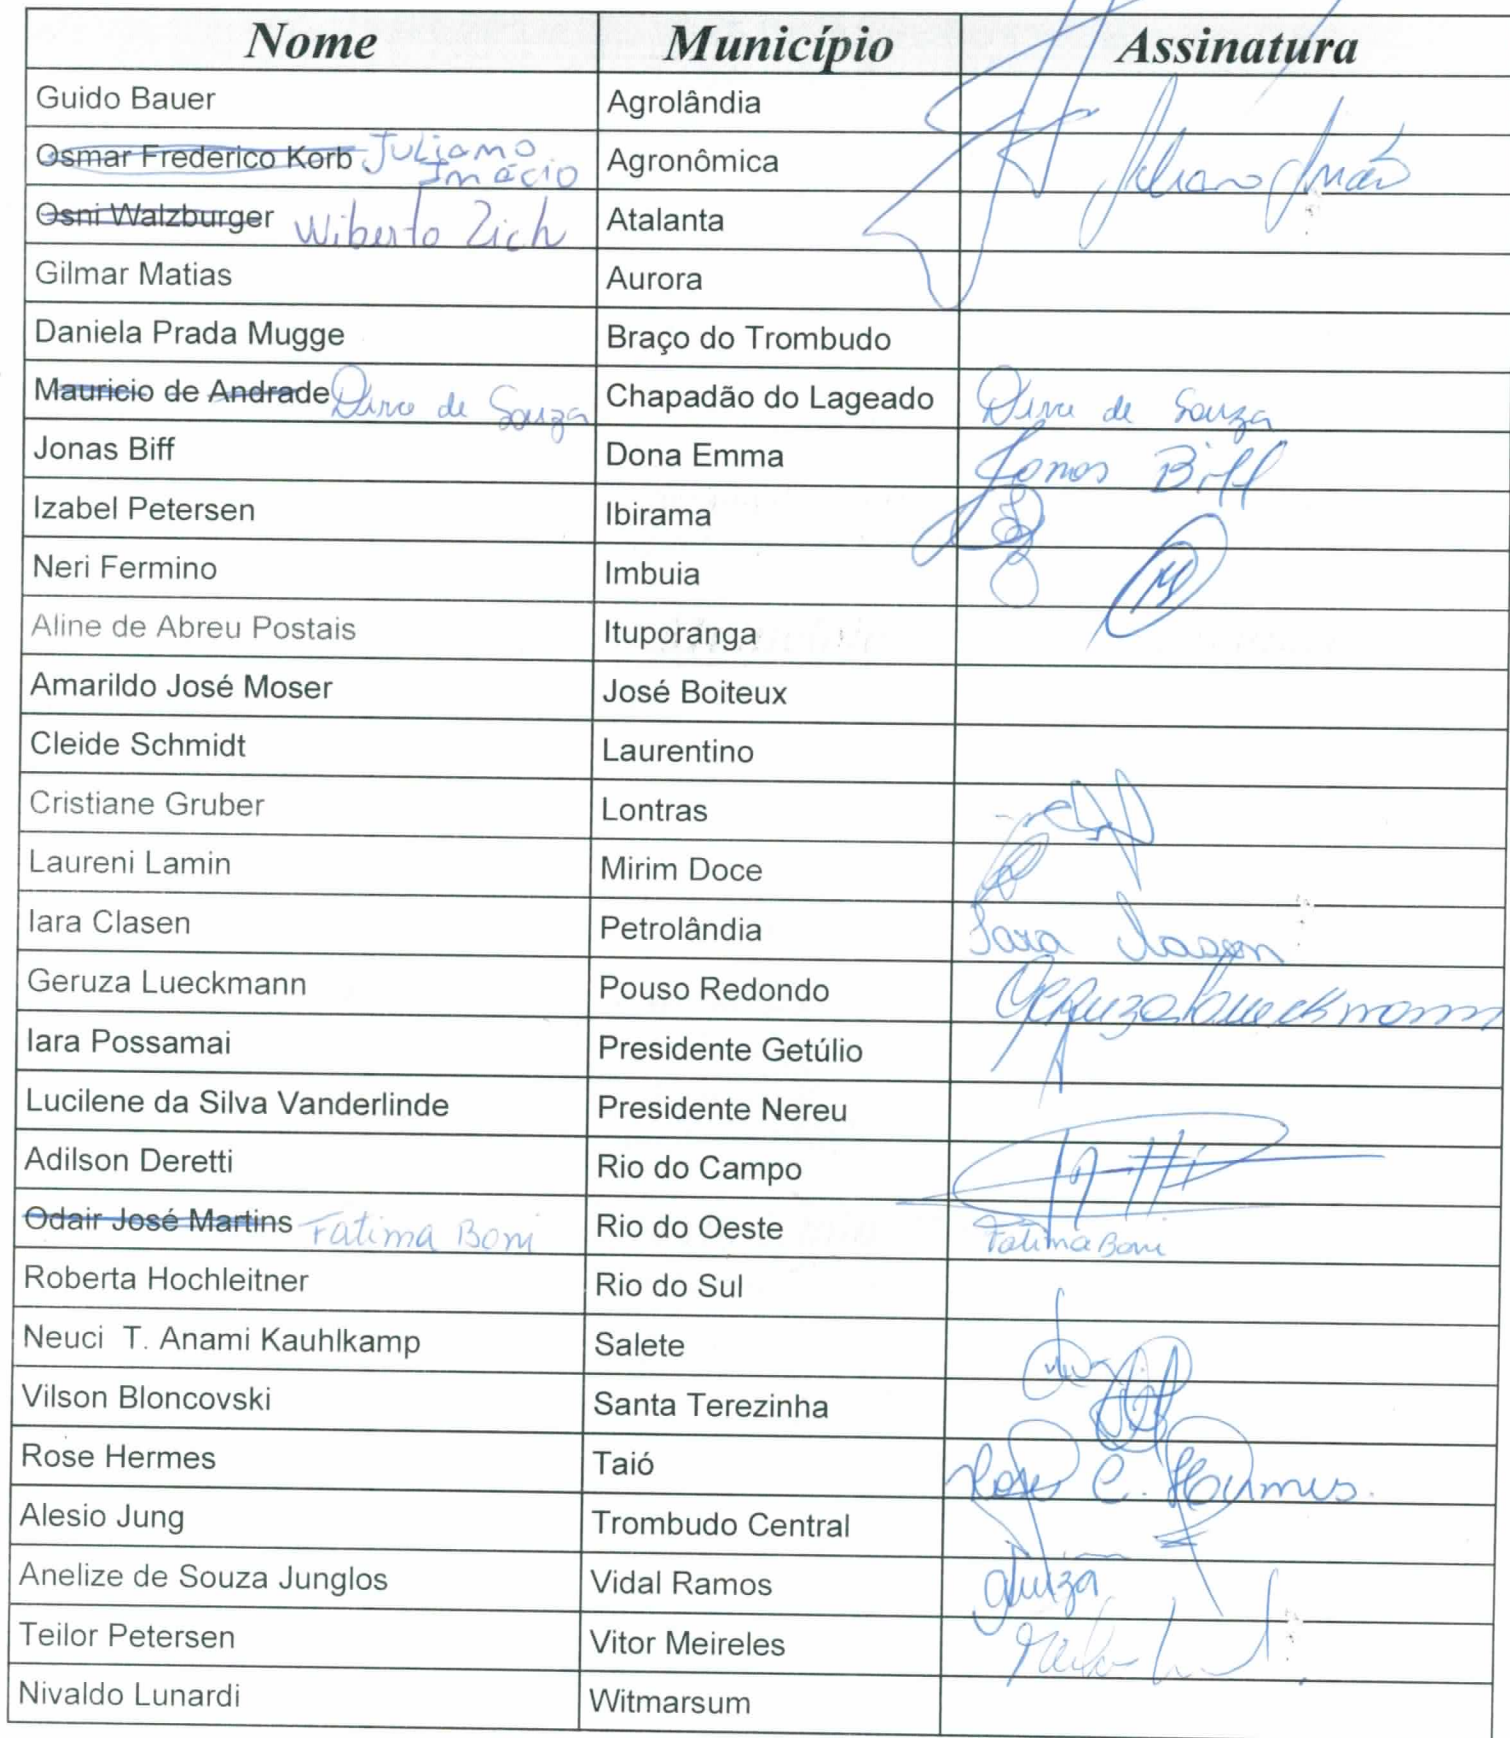 Nome Município Assinatura
Guido Bauer Agrolândia
Osmar Frederico Korb Juliano Inácio Agronômica Juliano Inácio
Osni Walzburger Wiberto Zich Atalanta
Gilmar Matias Aurora
Daniela Prada Mugge Braço do Trombudo
Mauricio de Andrade de Souza Chapadão do Lageado de Souza
Jonas Biff Dona Emma Jonas Biff
Izabel Petersen Ibirama
Neri Fermino Imbuia
Aline de Abreu Postais Ituporanga
Amarildo José Moser José Boiteux
Cleide Schmidt Laurentino
Cristiane Gruber Lontras
Laureni Lamin Mirim Doce
Iara Clasen Petrolândia Iara Clasen
Geruza Lueckmann Pouso Redondo Geruza Lueckmann
Iara Possamai Presidente Getúlio
Lucilene da Silva Vanderlinde Presidente Nereu
Adilson Deretti Rio do Campo
Odair José Martins Fatima Boni Rio do Oeste Fatima Boni
Roberta Hochleitner Rio do Sul
Neuci T. Anami Kauhlkamp Salete
Vilson Bloncovski Santa Terezinha
Rose Hermes Taió Rose C. Hermes.
Alesio Jung Trombudo Central
Anelize de Souza Junglos Vidal Ramos
Teilor Petersen Vitor Meireles
Nivaldo Lunardi Witmarsum